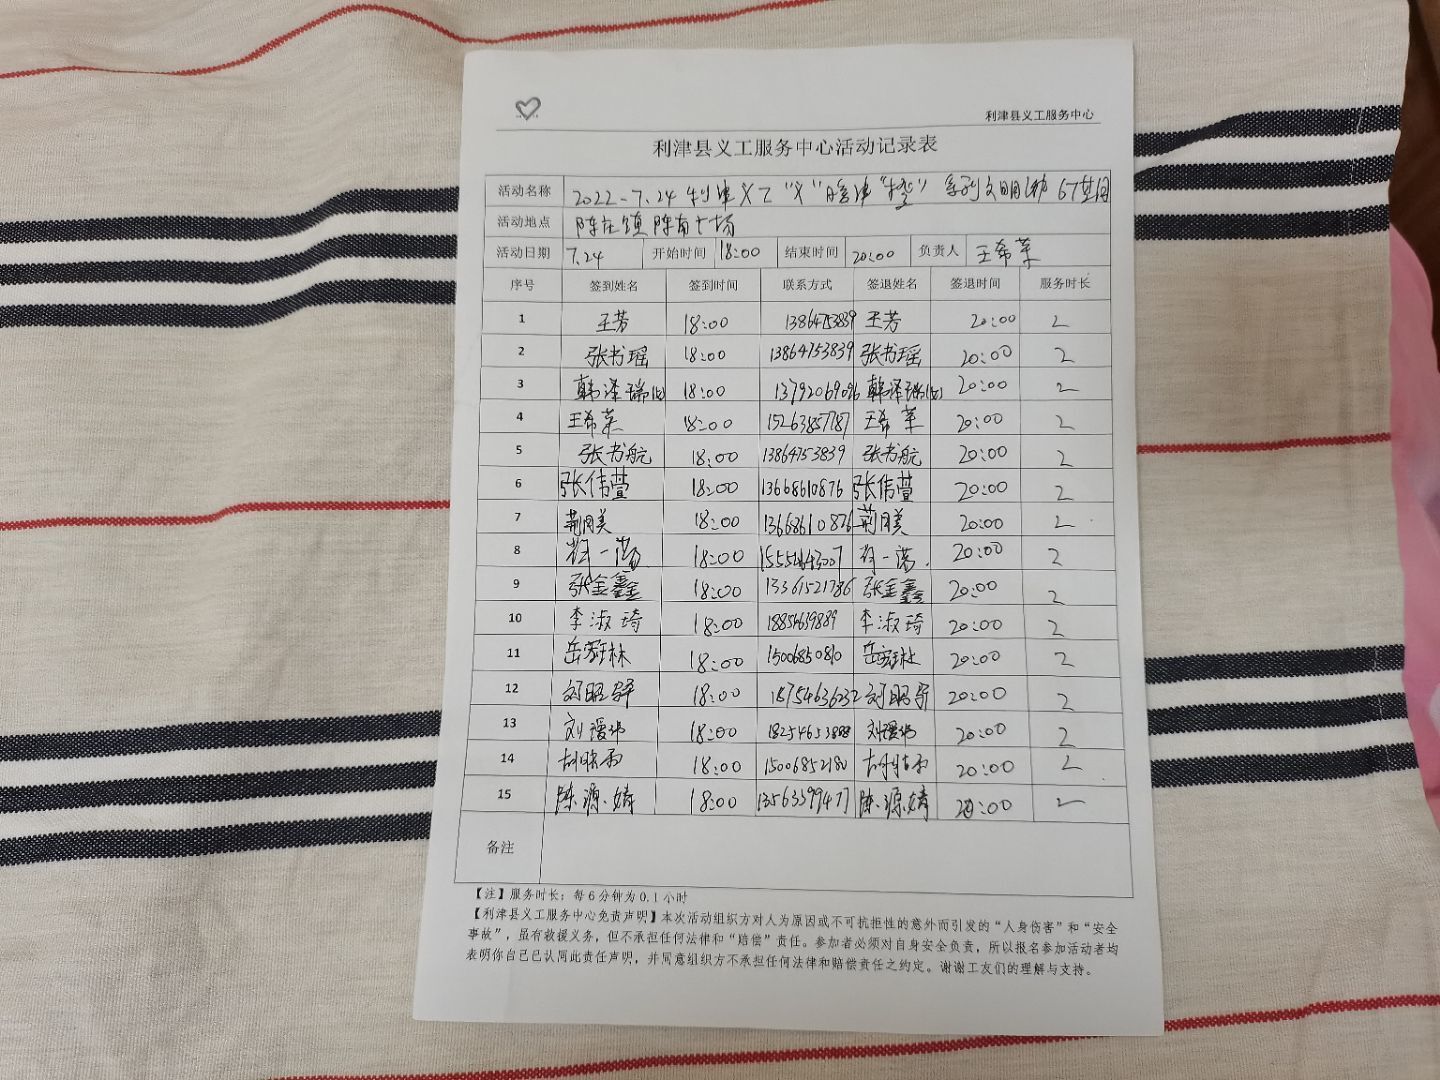 利津县义工服务中心
利津县义工服务中心活动记录表
活动名称 2022-7.24 利津义工“义” 系列文明 67期
活动地点 陈庄镇陈南广场
活动日期 7.24 开始时间 18:00 结束时间 20:00 负责人 王希荣
序号 签到姓名 签到时间 联系方式 签退姓名 签退时间 服务时长
1 王芳 18:00 13864753839 王芳 20:00 2
2 张书瑶 18:00 13864753839 张书瑶 20:00 2
3 韩泽瑞(代) 18:00 13792069096 韩泽瑞(代) 20:00 2
4 王希荣 18:00 15263857787 王希荣 20:00 2
5 张书航 18:00 13864753839 张书航 20:00 2
6 张伟萱 18:00 13668610876 张伟萱 20:00 2
7 荆同美 18:00 13668610876 荆同美 20:00 2
8 一诺 18:00 一诺 20:00 2
9 张金鑫 18:00 13361521786 张金鑫 20:00 2
10 李淑琦 18:00 李淑琦 20:00 2
11 岳 林 18:00 15006850810 岳 林 20:00 2
12 刘昭 18:00 18754636032 刘昭 20:00 2
13 刘瑷 18:00 刘瑷 20:00 2
14 胡 18:00 15006852180 胡 20:00 2
15 陈源婧 18:00 13563399477 陈源婧 20:00 2
备注
【注】服务时长：每6分钟为0.1小时
【利津县义工服务中心免责声明】本次活动组织方对人为原因或不可抗拒性的意外而引发的“人身伤害”和“安全
事故”，虽有救援义务，但不承担任何法律和“赔偿”责任。参加者必须对自身安全负责，所以报名参加活动者均
表明你自己已认同此责任声明，并同意组织方不承担任何法律和赔偿责任之约定。谢谢工友们的理解与支持。